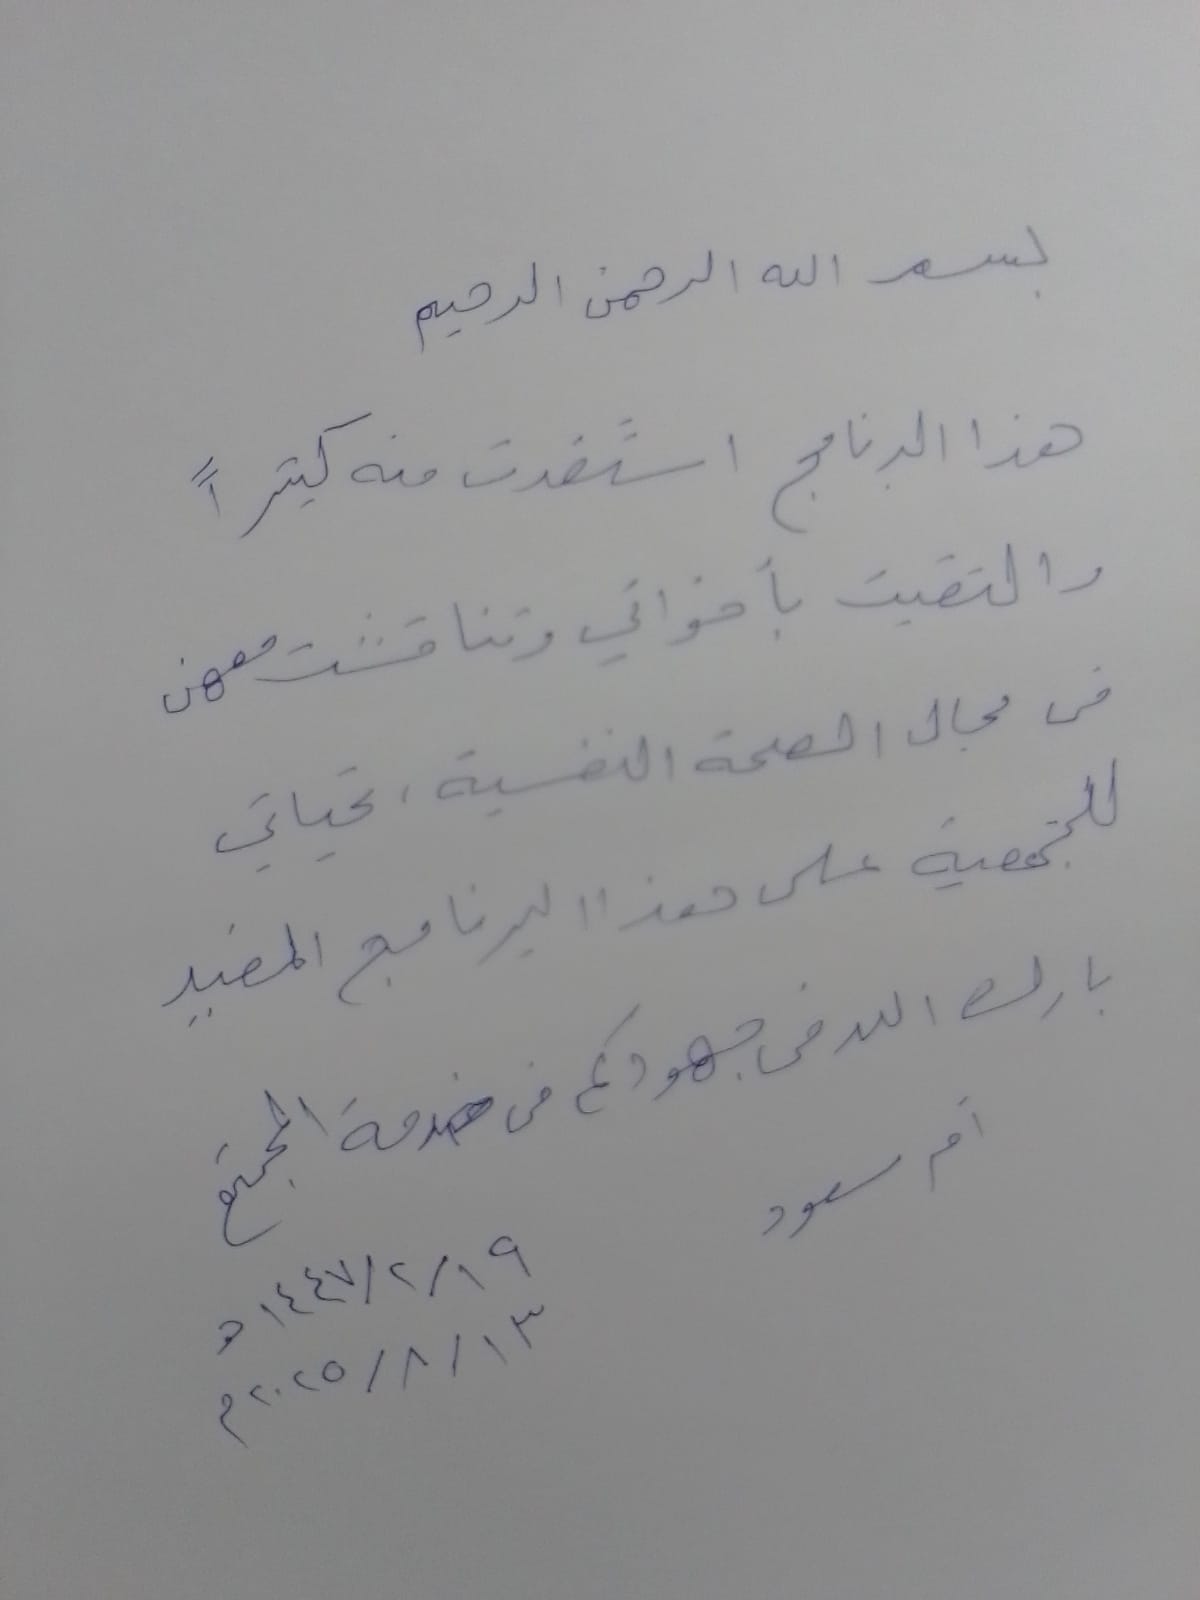 بسم الله الرحمن الرحيم
هذا البرنامج استفدت منه كثيراً
والتقيت بأخواتي وتناقشت معهن
في مجال الصحة النفسية ، تحياتي
للجمعية على هذا البرنامج المفيد
بارك الله في جهودكم في خدمة المجتمع
أم سعود
١٤٤٧/٢/١٩ هـ
٢٠٢٥/٨/١٣م